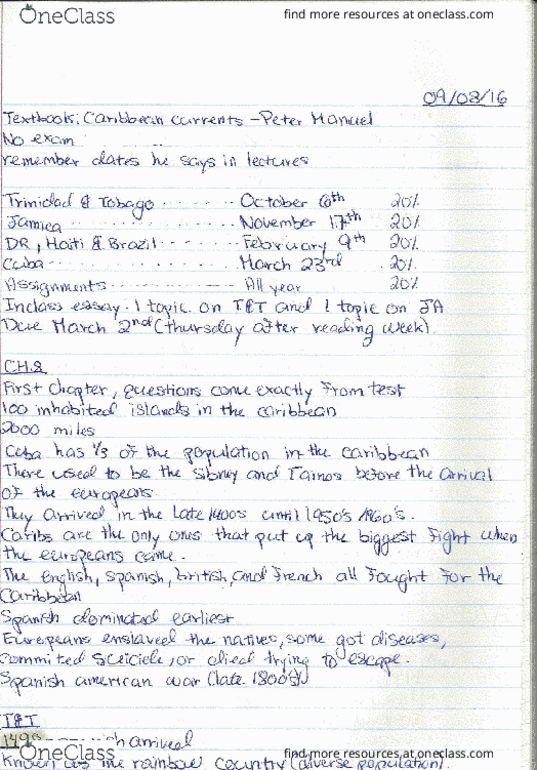 OneClass
find more resources at oneclass.com
09/08/16
Textbook: Caribbean Currents - Peter Manuel
No exam
remember dates he says in lectures
Trinidad & Tobago ······ October 6th 20%
Jamica ·········· November 17th 20%
DR, Haiti & Brazil ······ February 9th 20%
Cuba ·············· March 23rd 20%
Assignments ············ All year 20%
Inclass essay · 1 topic on T&T and 1 topic on JA
Due March 2nd (thursday after reading week).
CH.2
First chapter, questions come exactly from test
100 inhabited islands in the caribbean
2000 miles
Cuba has 1/3 of the population in the caribbean
There used to be the Sibney and Tainos before the arrival
of the europeans.
They arrived in the late 1400's until 1950's 1960's.
Caribs are the only ones that put up the biggest fight when
the europeans came.
The english, spanish, british, and french all fought for the
Caribbean
Spanish dominated earliest
Europeans enslaved the natives, some got diseases,
commited sueicide, or died trying to escape.
Spanish american war (late 1800's)
T&T
arrived
Known as the rainbow country (diverse population).
OneClass
find more resources at oneclass.com